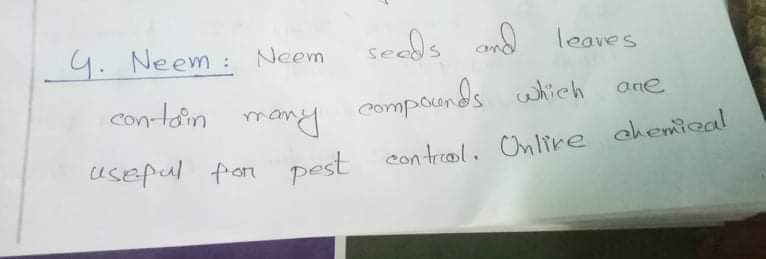 4. Neem: Neem seeds and leaves
contain many compounds which are
useful for pest control. Unlike chemical